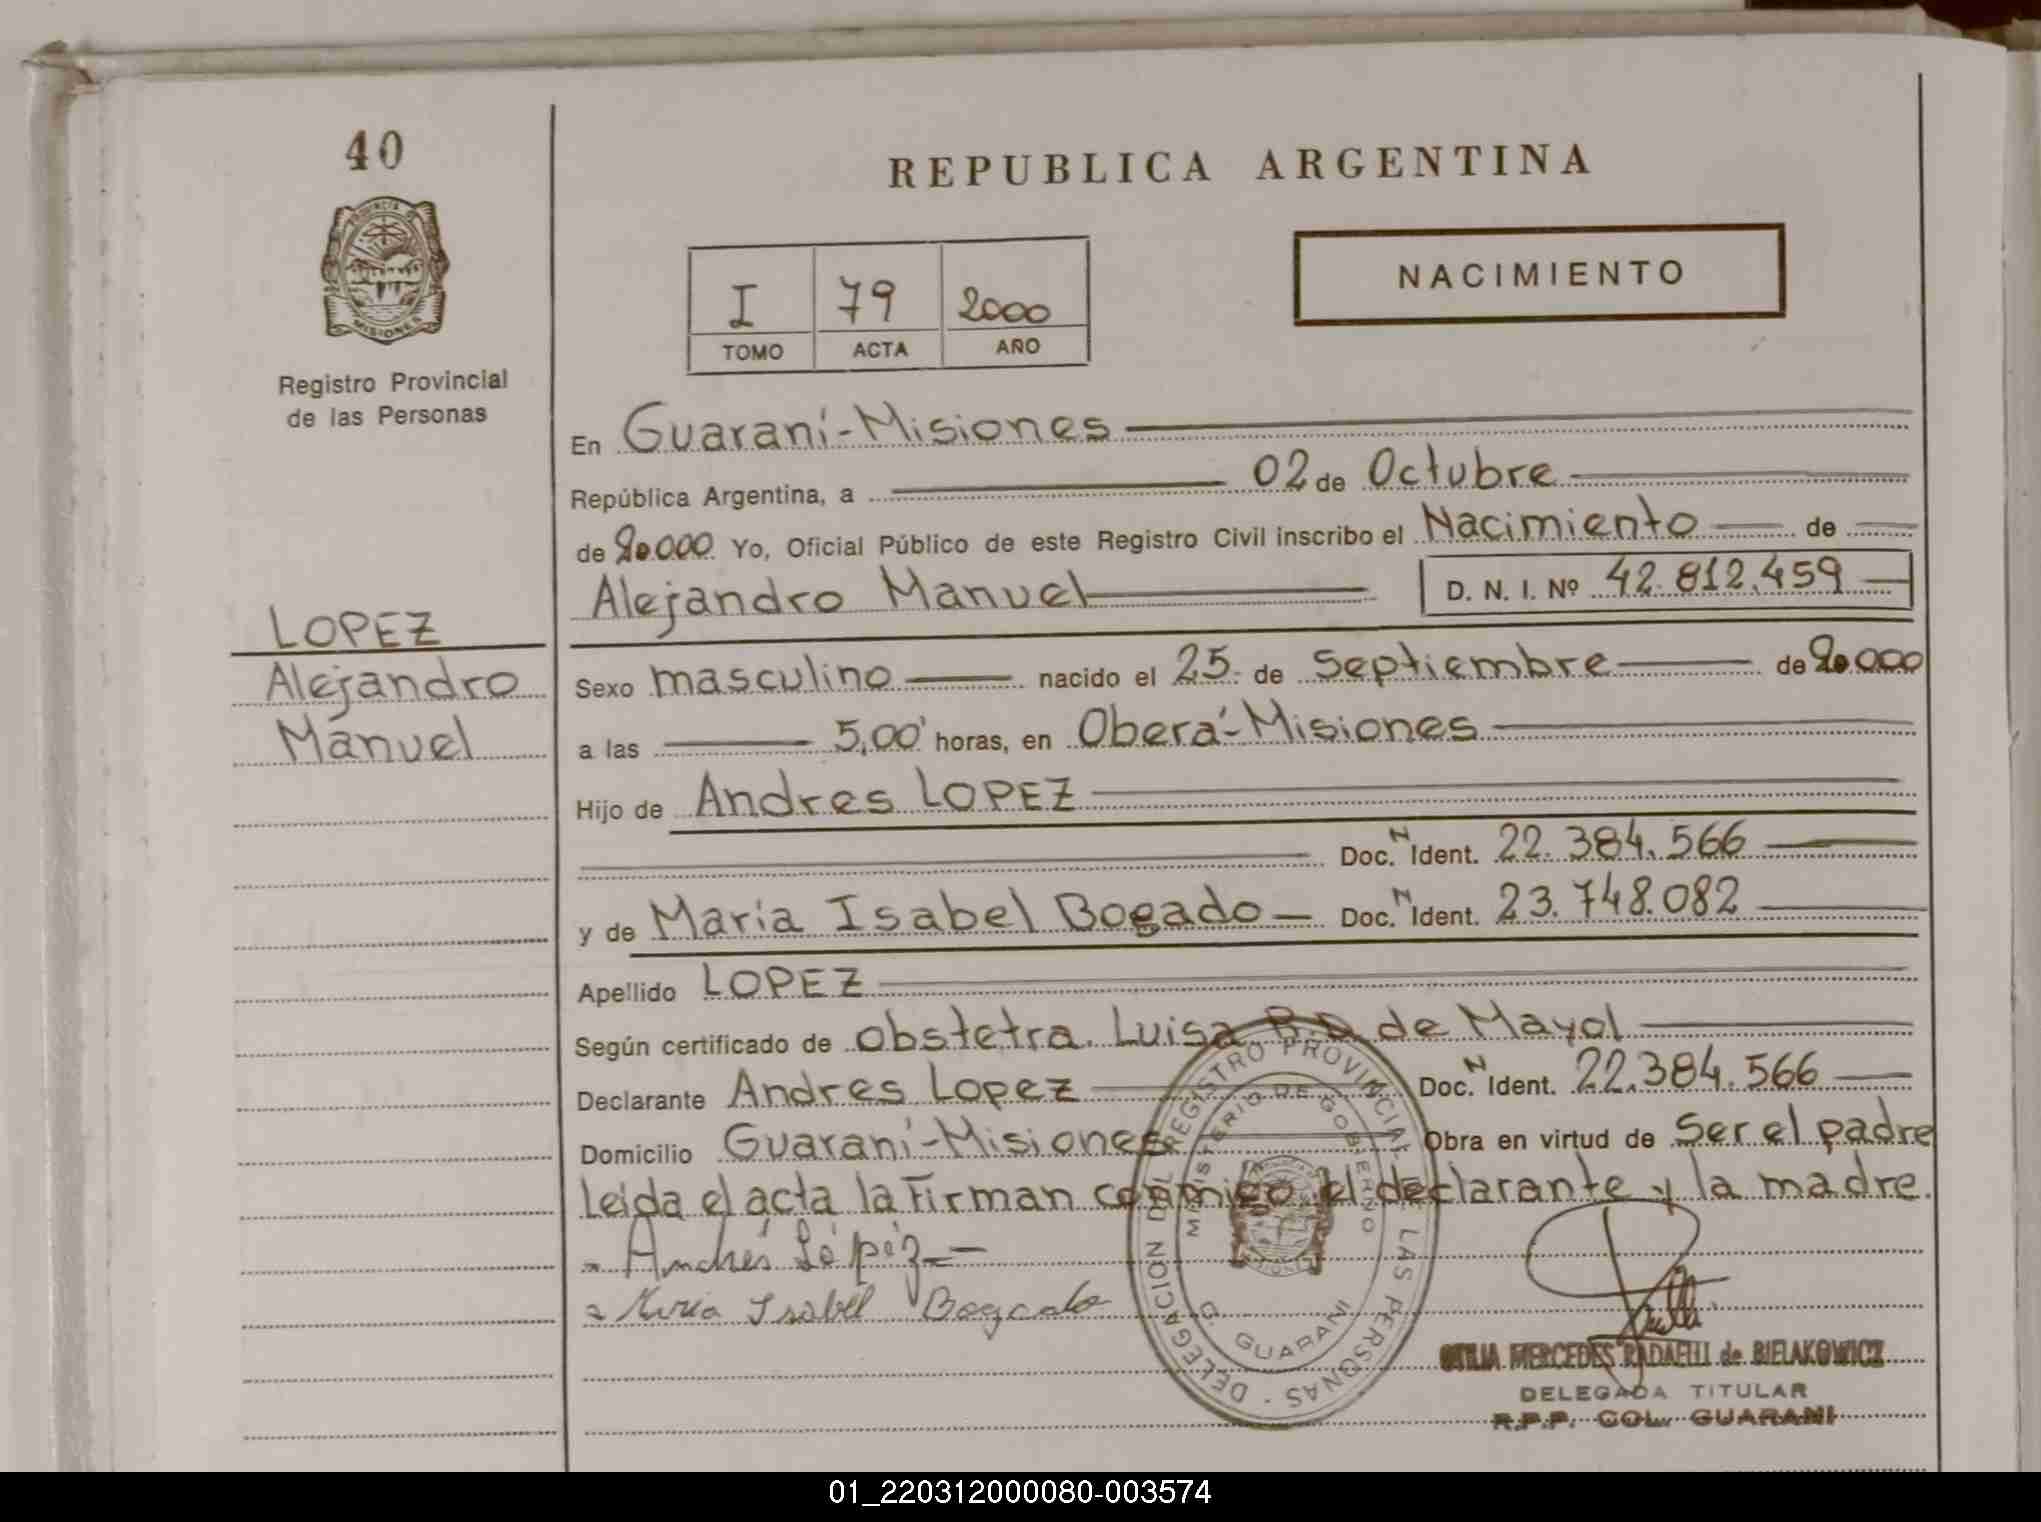 40
PROVINCIA DE
MISIONES
Registro Provincial
de las Personas
LOPEZ
Alejandro
Manuel
REPUBLICA ARGENTINA
NACIMIENTO
I 79 2000
TOMO ACTA AÑO
En Guaraní-Misiones
República Argentina, a 02 de Octubre
de 20.000 Yo, Oficial Público de este Registro Civil inscribo el Nacimiento de
Alejandro Manuel D. N. I. Nº 42.812.459
Sexo masculino nacido el 25 de Septiembre de 20.000
a las 5,00' horas, en Oberá-Misiones
Hijo de Andres LOPEZ
Doc. N Ident. 22.384.566
y de María Isabel Bogado Doc. N Ident. 23.748.082
Apellido LOPEZ
Según certificado de obstetra. Luisa B.D. de Mayol
Declarante Andres Lopez Doc. N Ident. 22.384.566
Domicilio Guaraní-Misiones Obra en virtud de Ser el padre
Leida el acta la Firman conmigo el declarante y la madre.
Andrés López
María Isabel Bogado
DELEGACION DEL REGISTRO PROVINCIAL DE LAS PERSONAS
MINISTERIO DE GOBIERNO
C. GUARANI
OTILIA MERCEDES RADAELLI de BIELAKOWICZ
DELEGADA TITULAR
R.P.P. COL. GUARANI
01_220312000080-003574